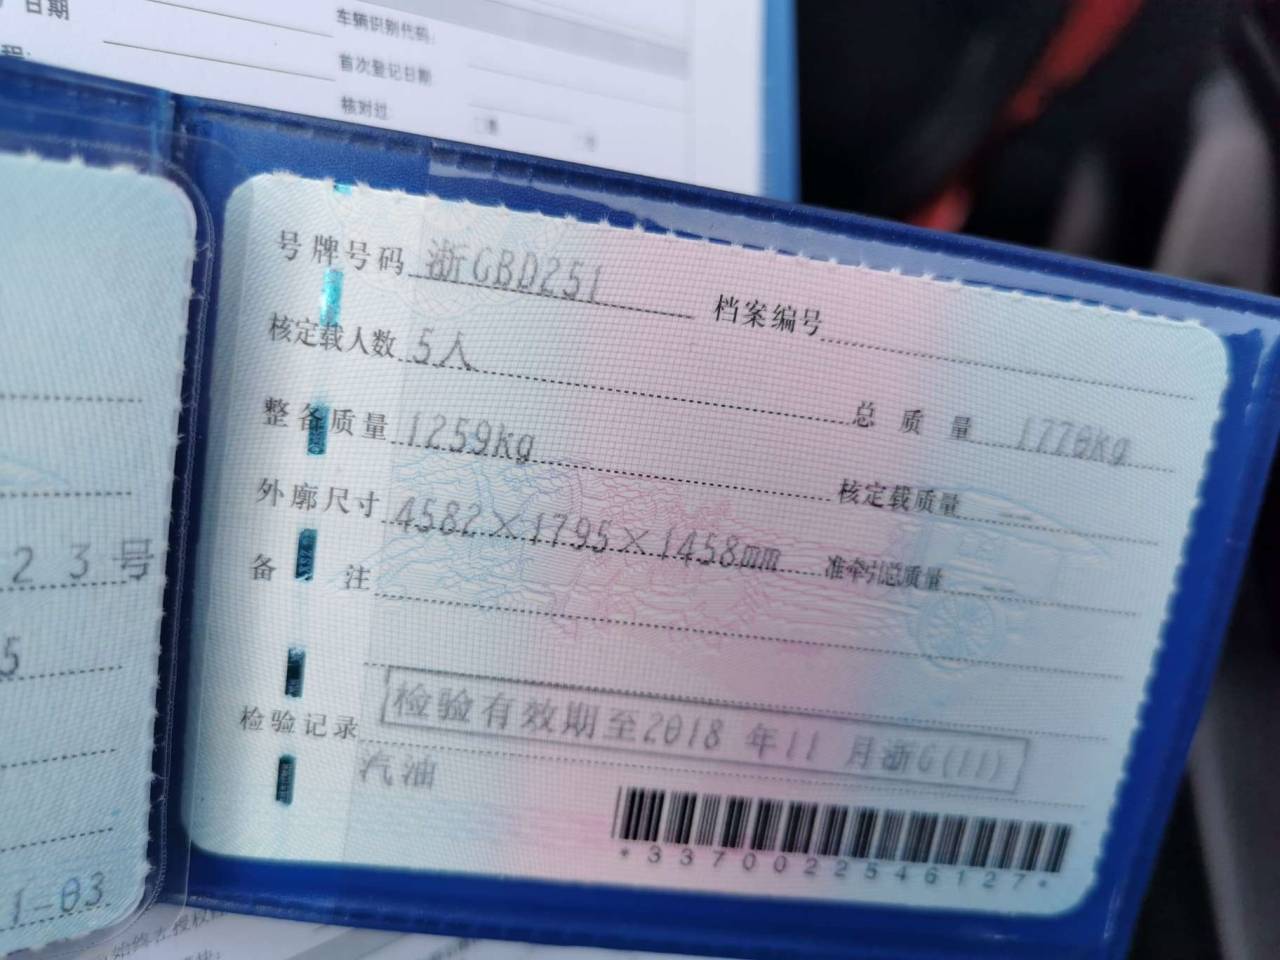 日期
车辆识别代码:
首次登记日期
核对过:
号牌号码 浙GBD251
档案编号
核定载人数 5人
总质量 1770kg
整备质量 1259kg
核定载质量 --
外廓尺寸 4582×1795×1458mm
准牵引总质量 --
备注
检验记录 检验有效期至2018年11月浙G(11)
汽油
*3370022546127*
23号
5
1-03